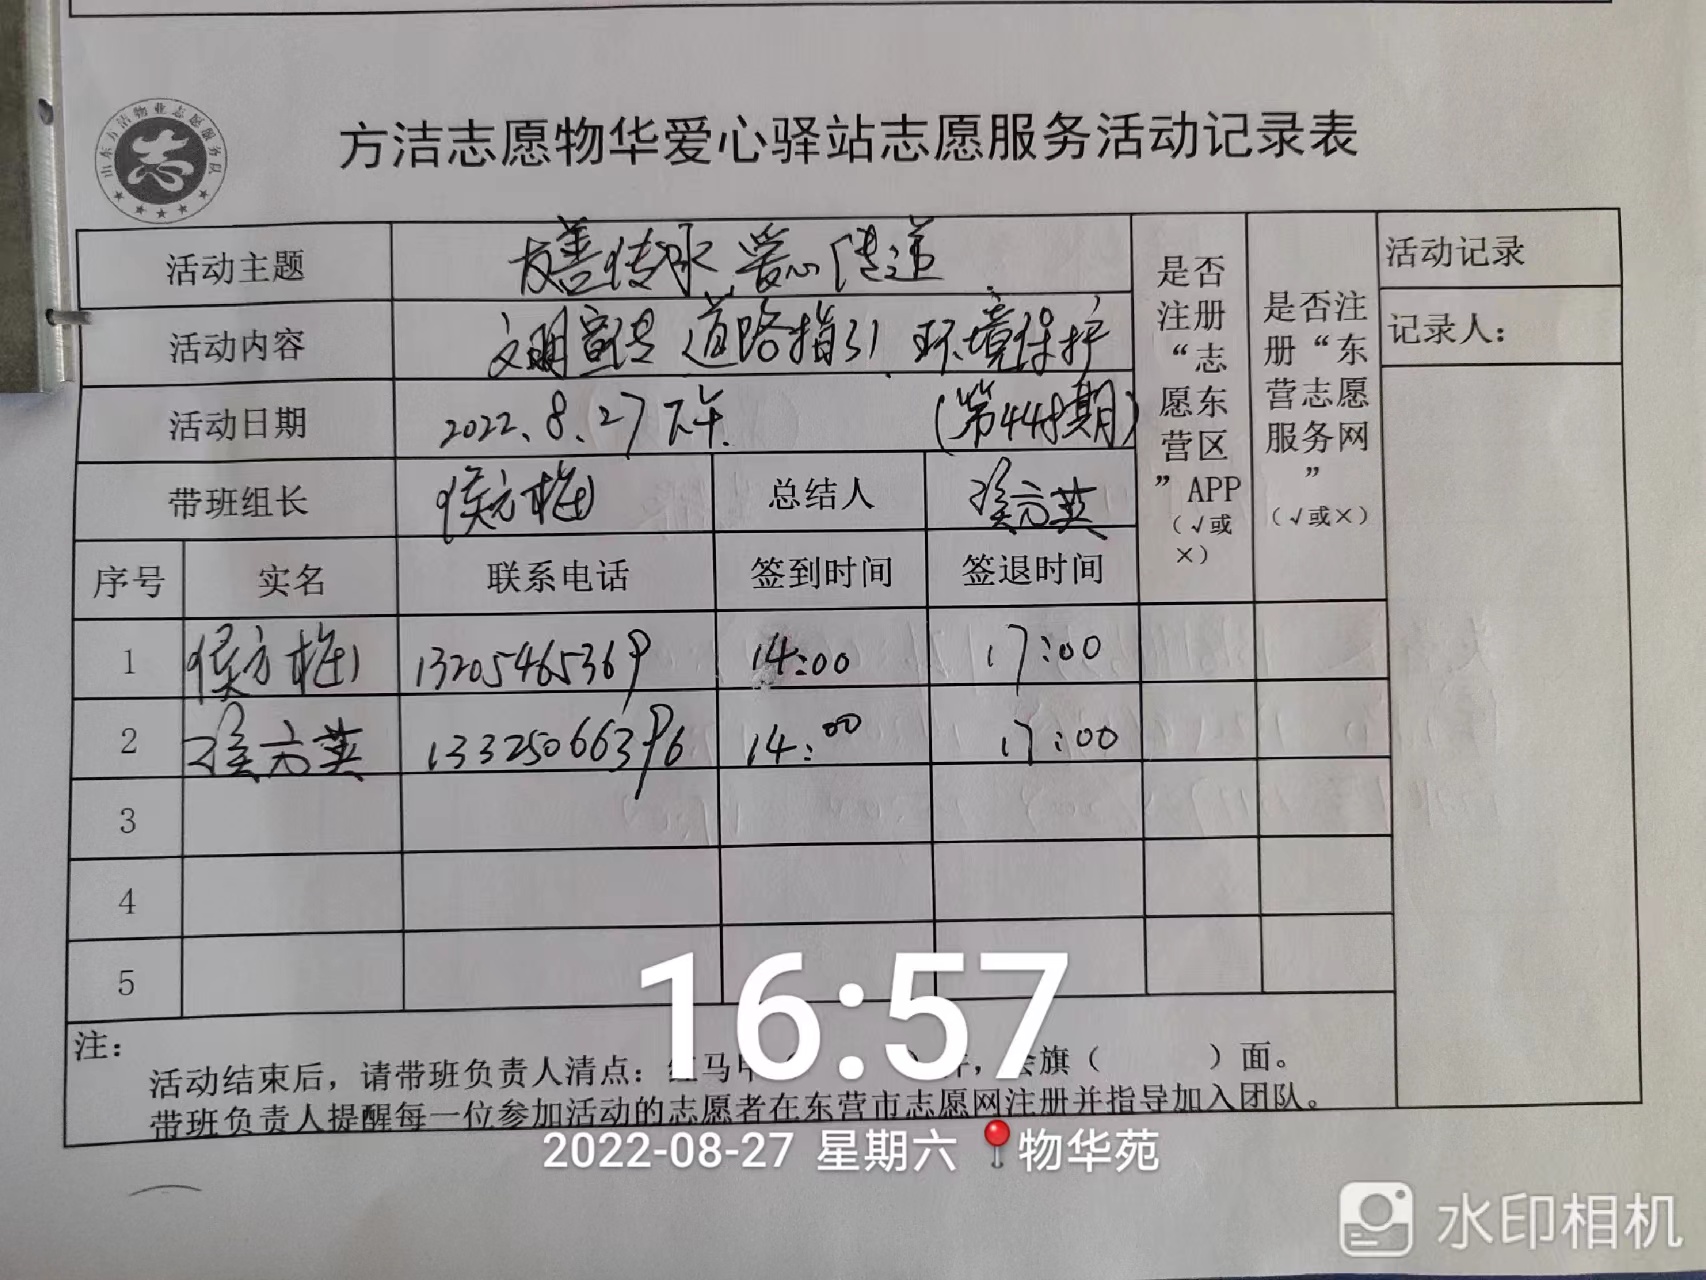 山东方洁物业志愿服务队
志
方洁志愿物华爱心驿站志愿服务活动记录表
活动主题 友善传承 爱心传递
活动内容 文明宣传 道路指引 环境保护
活动日期 2022.8.27下午 (第448期)
带班组长 侯方梅 总结人 侯方英
是否注册“志愿东营区”APP（√或×）
是否注册“东营志愿服务网”（√或×）
活动记录
记录人：
序号 实名 联系电话 签到时间 签退时间
1 侯方梅 13205465369 14:00 17:00
2 侯方英 13325066396 14:00 17:00
3
4
5
注：
活动结束后，请带班负责人清点：红马甲（ ）件，会旗（ ）面。
带班负责人提醒每一位参加活动的志愿者在东营市志愿网注册并指导加入团队。
16:57
2022-08-27 星期六 物华苑
水印相机